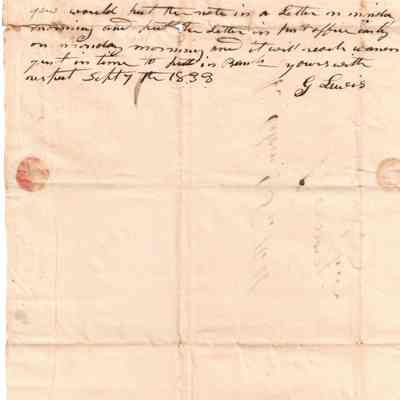 you would put the note in a Letter on monday
morning and put the Letter in post office early
on monday morning and it will reach
just in time to put in Bank yours with
respect Sept 7th 1838
G Lewis